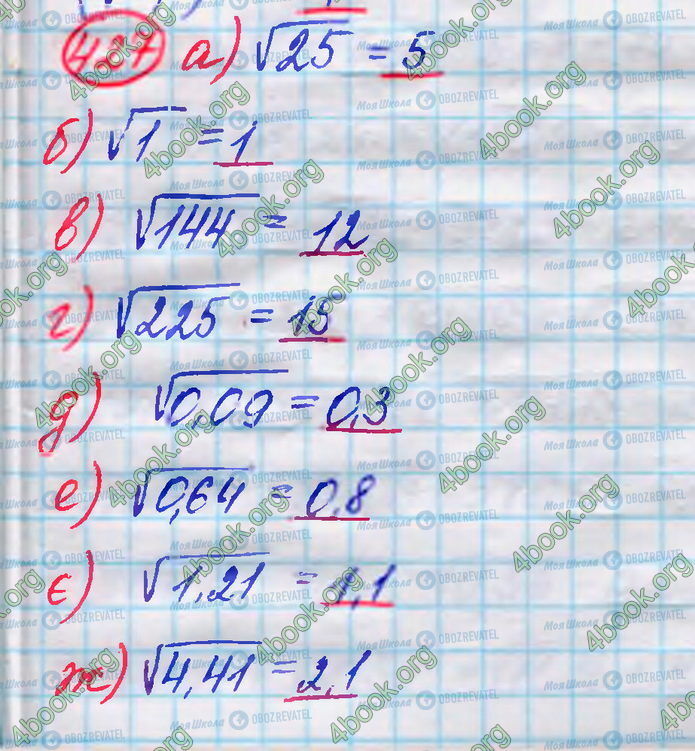 427 а) √25 = 5
б) √1 = 1
в) √144 = 12
г) √225 = 15
д) √0,09 = 0,3
е) √0,64 = 0,8
є) √1,21 = 1,1
ж) √4,41 = 2,1
4book.org
Моя Школа OBOZREVATEL